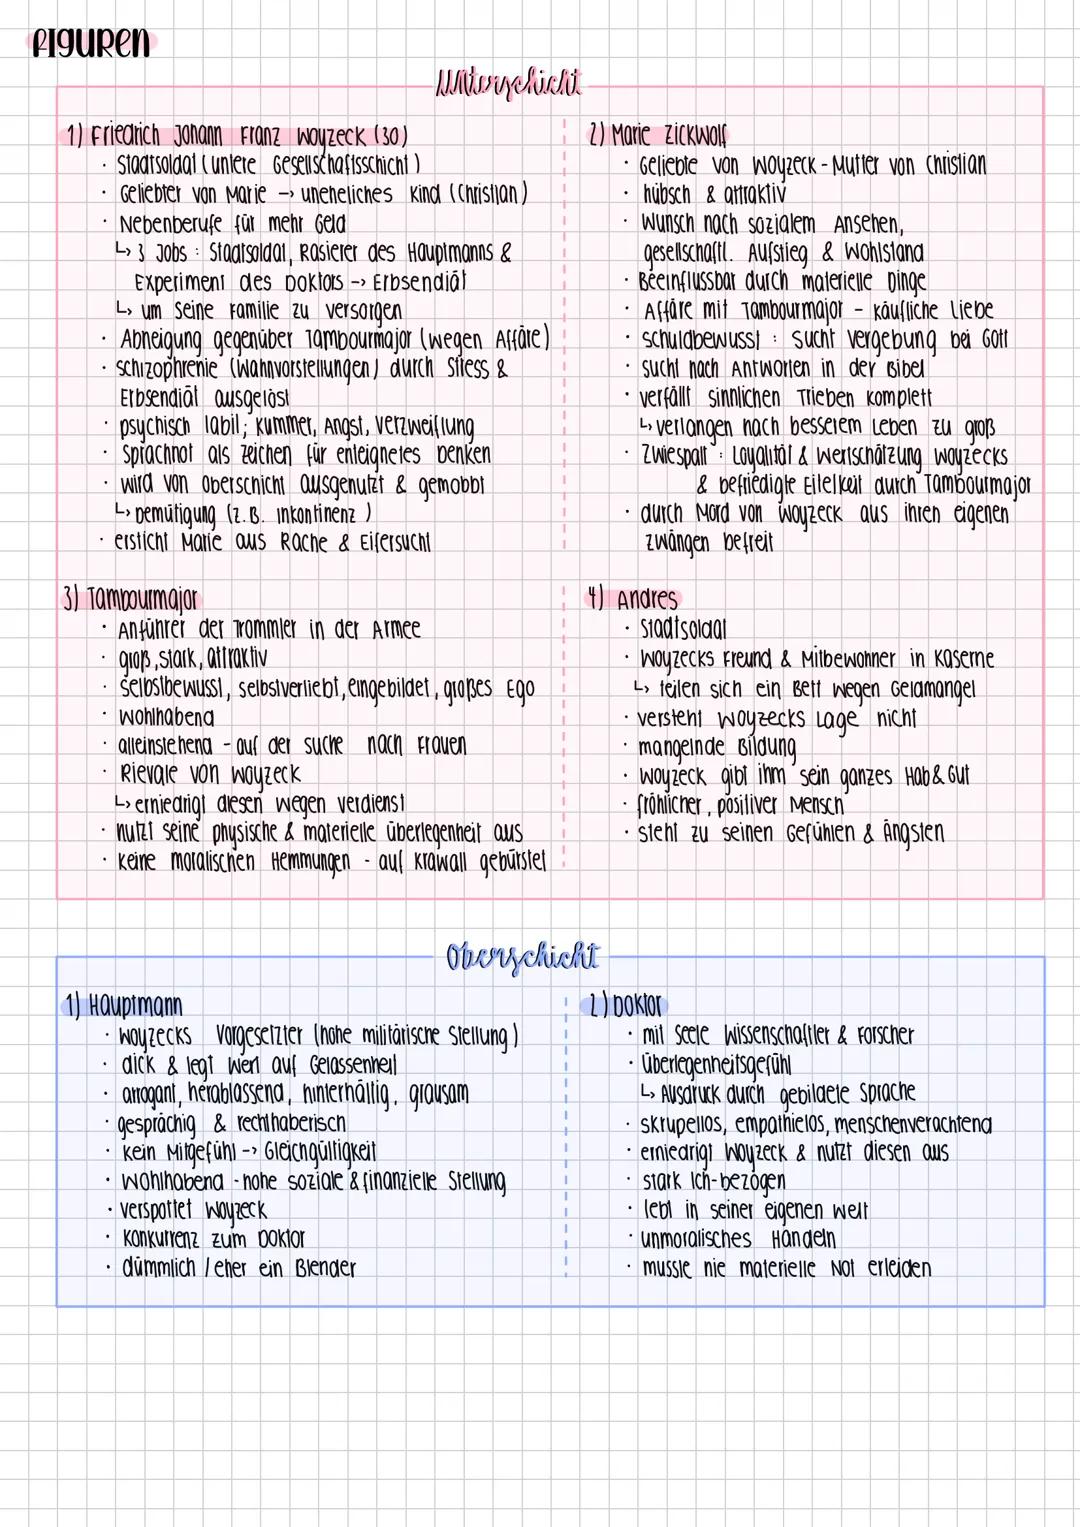 FIGUREN
Unterschicht
1) Friedrich Johann Franz Woyzeck (30)
· Stadtsoldat (untere Gesellschaftsschicht)
· Geliebter von Marie -> uneheliches Kind (Christian)
· Nebenberufe für mehr Geld
↳ 3 Jobs: Stadtsoldat, Rasierer des Hauptmanns &
Experiment des Doktors -> Erbsendiät
↳ um seine Familie zu versorgen
· Abneigung gegenüber Tambourmajor (wegen Affäre)
· schizophrenie (Wahnvorstellungen) durch Stress &
Erbsendiät ausgelöst
· psychisch labil; Kummer, Angst, Verzweiflung
· Sprachnot als Zeichen für enteignetes Denken
· wird von Oberschicht ausgenutzt & gemobbt
↳ Demütigung (z.B. Inkontinenz)
· ersticht Marie aus Rache & Eifersucht
2) Marie Zickwolf
· Geliebte von Woyzeck - Mutter von Christian
· hübsch & attraktiv
· Wunsch nach sozialem Ansehen,
gesellschaftl. Aufstieg & Wohlstand
· Beeinflussbar durch materielle Dinge
· Affäre mit Tambourmajor - käufliche Liebe
· schuldbewusst: sucht Vergebung bei Gott
· sucht nach Antworten in der Bibel
· verfällt sinnlichen Trieben komplett
↳ Verlangen nach besserem Leben zu groß
· Zwiespalt: Loyalität & Wertschätzung Woyzecks
& befriedigte Eitelkeit durch Tambourmajor
· durch Mord von Woyzeck aus ihren eigenen
Zwängen befreit
3) Tambourmajor
· Anführer der Trommler in der Armee
· groß, stark, attraktiv
· selbstbewusst, selbstverliebt, eingebildet, großes Ego
· wohlhabend
· alleinstehend - auf der suche nach Frauen
· Rievale von Woyzeck
↳ erniedrigt diesen wegen verdienst
· nutzt seine physische & materielle überlegenheit aus
· keine moralischen Hemmungen - auf Krawall gebürstet
4) Andres
· Stadtsoldat
· Woyzecks Freund & Mitbewohner in Kaserne
↳ teilen sich ein Bett wegen Geldmangel
· versteht Woyzecks Lage nicht
· mangelnde Bildung
· Woyzeck gibt ihm sein ganzes Hab & Gut
· fröhlicher, positiver Mensch
· steht zu seinen Gefühlen & Ängsten
Oberschicht
1) Hauptmann
· Woyzecks Vorgesetzter (hohe militärische Stellung)
· dick & legt Wert auf Gelassenheit
· arrogant, herablassend, hinterhältig, grausam
· gesprächig & rechthaberisch
· kein Mitgefühl -> Gleichgültigkeit
· wohlhabend - hohe soziale & finanzielle Stellung
· verspottet Woyzeck
· Konkurrenz zum Doktor
· dümmlich / eher ein Blender
2) Doktor
· mit Seele Wissenschaftler & Forscher
· Überlegenheitsgefühl
↳ Ausdruck durch gebildete Sprache
· skrupellos, empathielos, menschenverachtend
· erniedrigt Woyzeck & nutzt diesen aus
· stark Ich-bezogen
· lebt in seiner eigenen Welt
· unmoralisches Handeln
· musste nie materielle Not erleiden